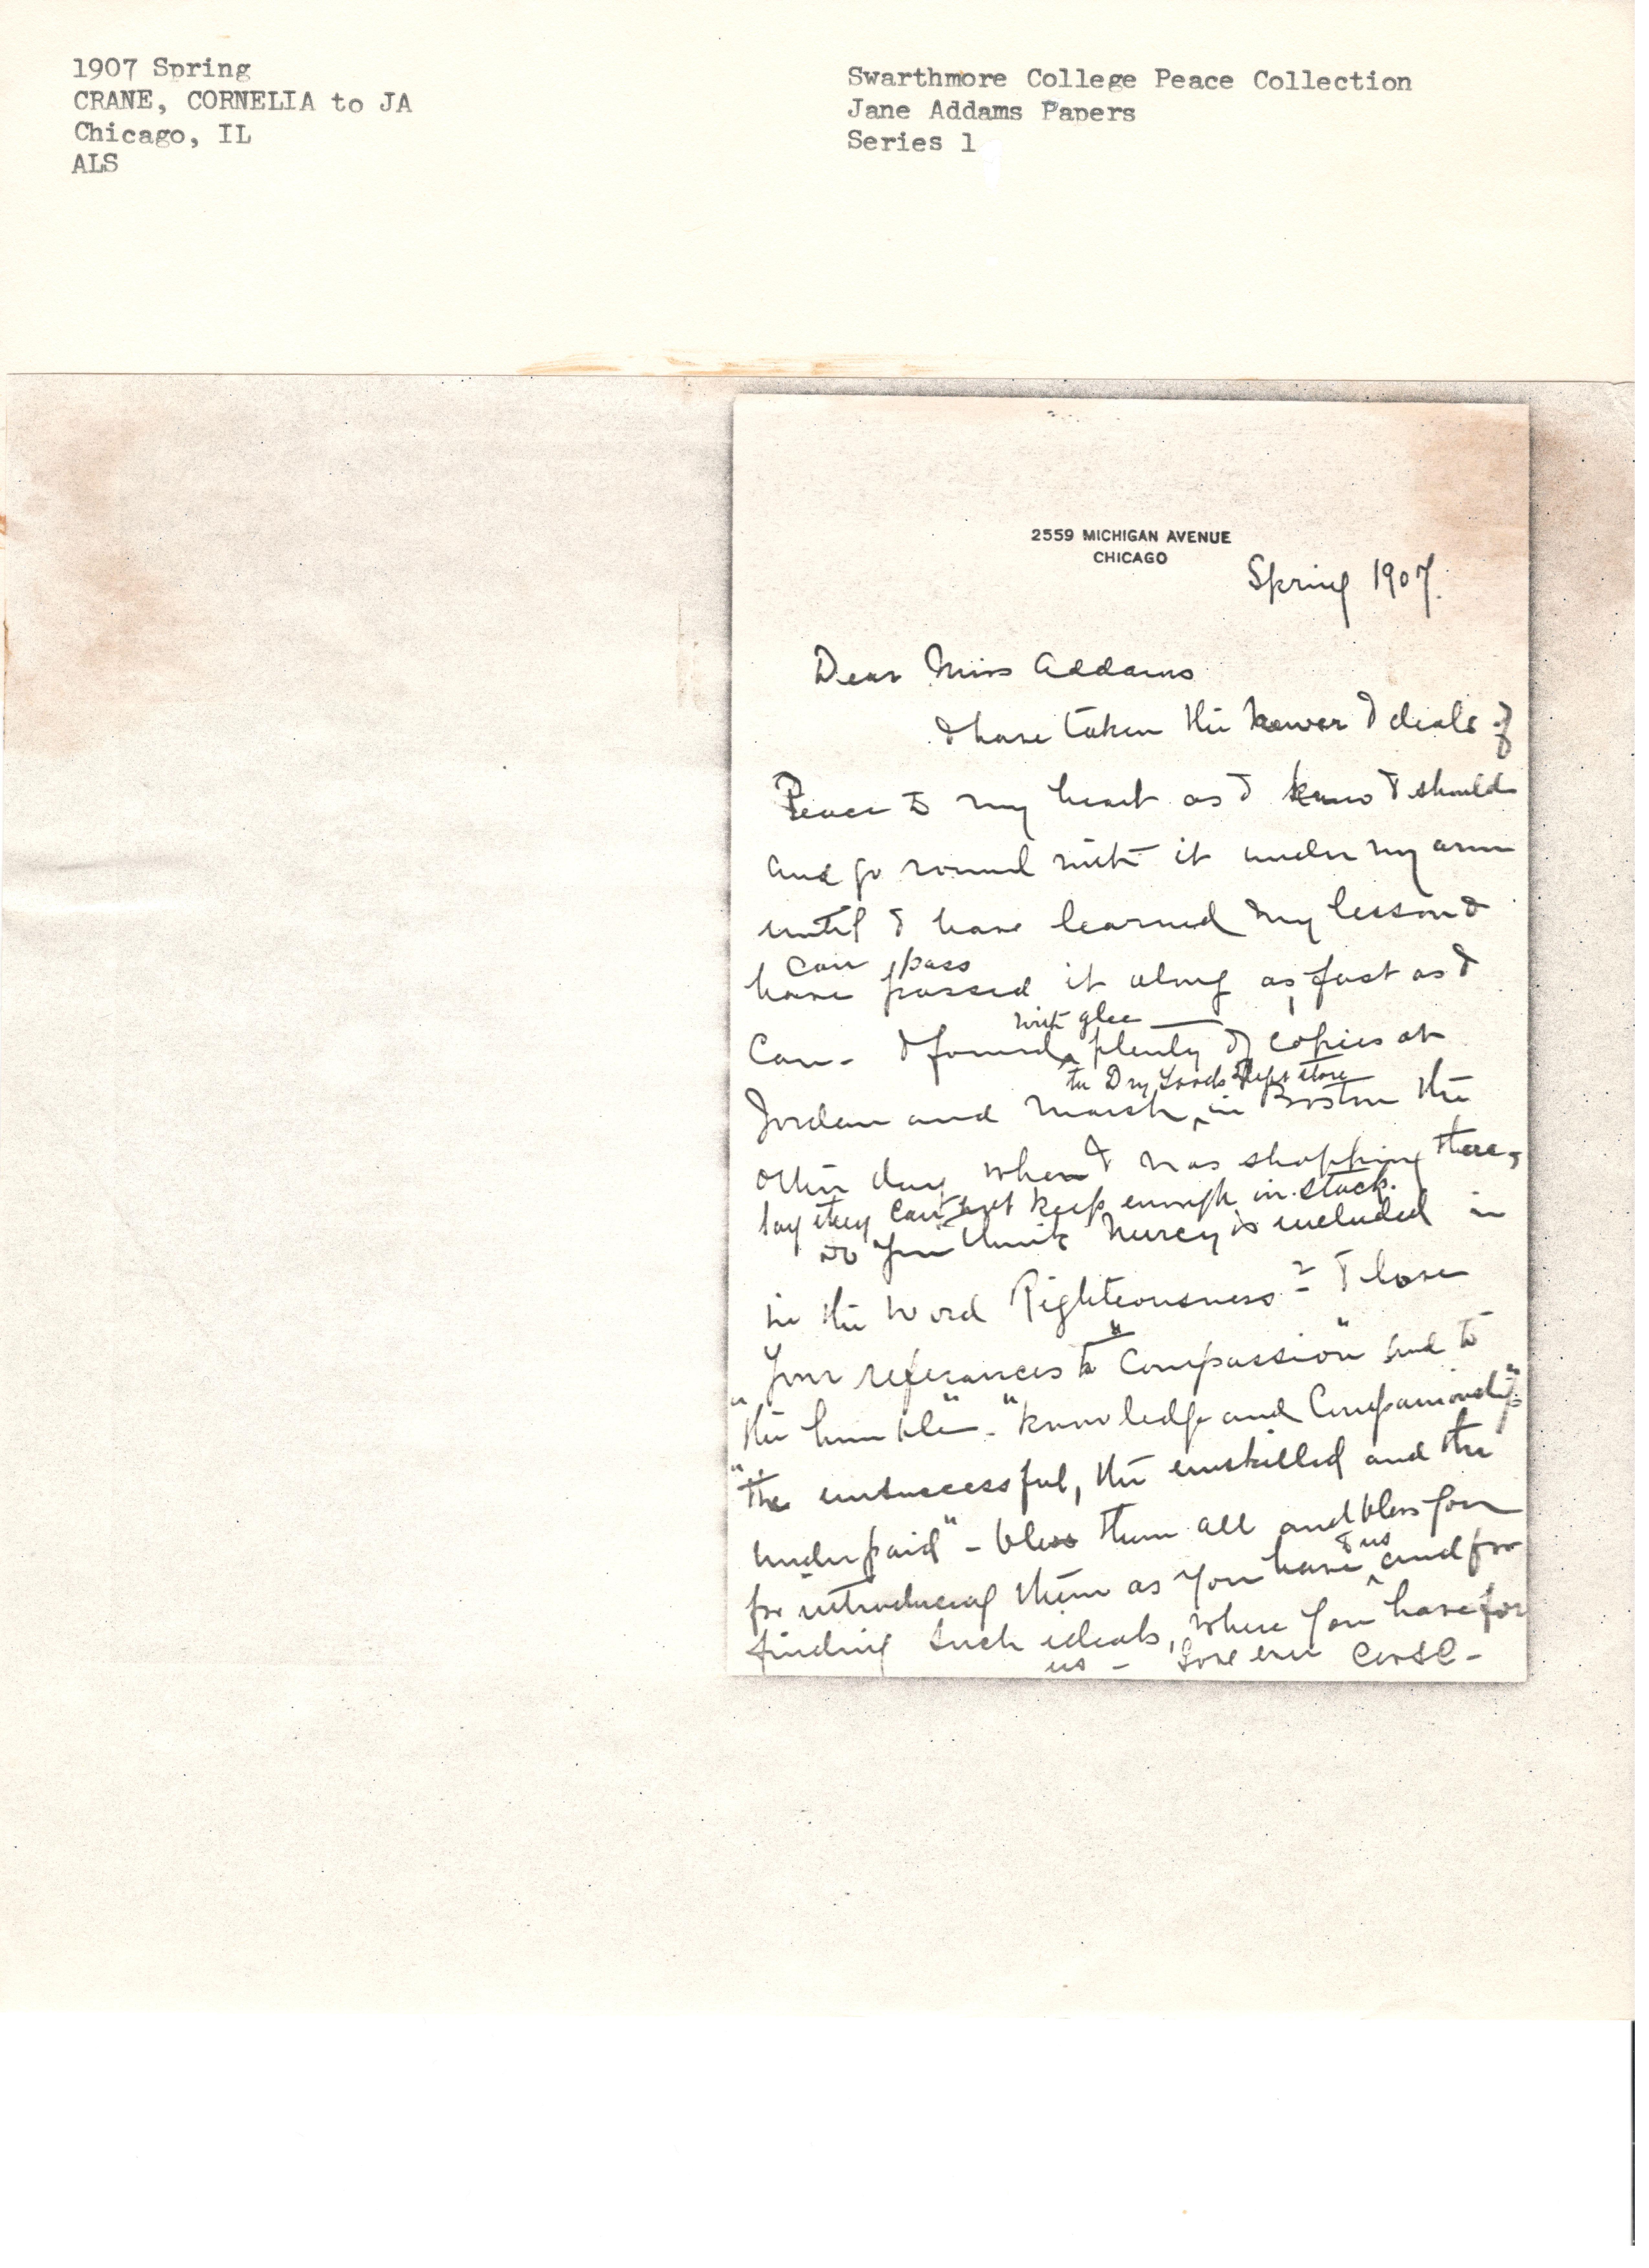 1907 Spring
CRANE, CORNELIA to JA
Chicago, IL
ALS
Swarthmore College Peace Collection
Jane Addams Papers
Series 1
2559 MICHIGAN AVENUE
CHICAGO
Spring 1907.
Dear Miss Addams
I have taken the Newer Ideals of
Peace to my heart as I knew I should
and go round with it under my arm
until I have learned my lesson &
can pass
have passed it along as fast as I
with glee
can - I found plenty of copies at
the Dry Goods Dept store
Jordan and Marsh, in Boston the
other day when I was shopping there,
say they cannot keep enough in stock.
Do you think Mercy is included in
in the word Righteousness? - I love
your referances to "Compassion" and to
"the humble" - "knowledge and Companionship"
"the unsuccessful, the unskilled and the
underpaid" - bless them all and bless you
& us
for introducing them as you have and for
finding such ideals, where you have for
us - Love ever